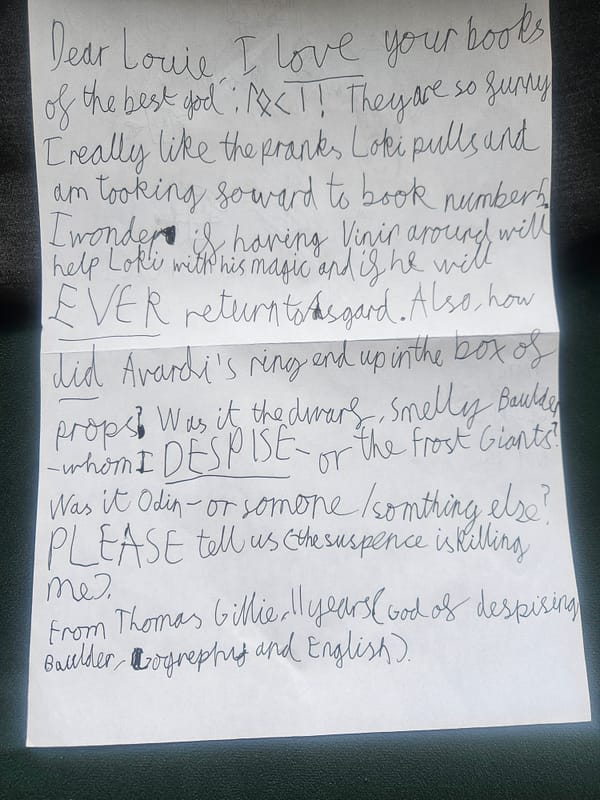 Dear Louie, I love your books
of the best god: ᛚᛟᚲᛁ! They are so funny
I really like the pranks Loki pulls and
am looking forward to book number 5.
I wonder if having Vinir around will
help Loki with his magic and if he will
EVER return to Asgard. Also, how
did Avardi's ring end up in the box of
props? Was it the dwarf, smelly Baulder
-whom I DESPISE- or the Frost Giants?
Was it Odin-or somone/somthing else?
PLEASE tell us (the suspence is killing
me).
From Thomas Gillie, 11 years (God of despising
Baulder, Geography and English).